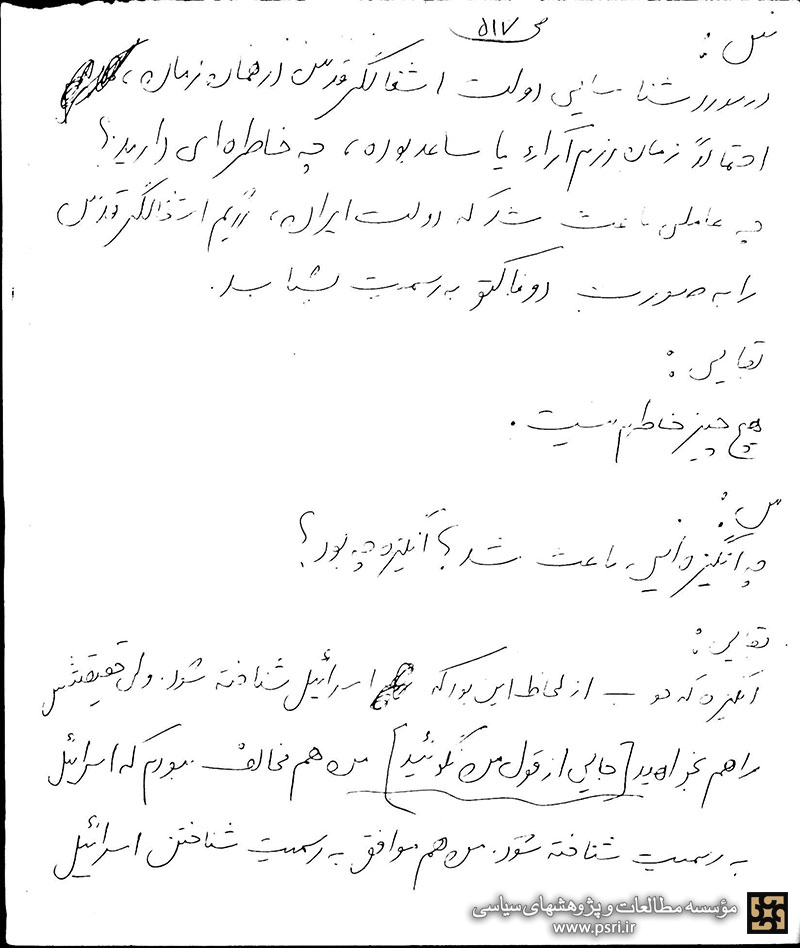 ص ۵۱۷
س:
در مورد شناسایی دولت اشغالگر قدس در همان زمان،
احتمالاً زمان رزم‌آراء یا ساعد بوده، چه خاطره‌ای دارید؟
چه عاملی باعث شد که دولت ایران، رژیم اشغالگر قدس
را به صورت دوفاکتو به رسمیت بشناسد.
بقایی:
هیچ چیز خاطرم نیست.
س:
چه انگیزه‌ایی باعث شد؟ انگیزه چه بود؟
بقایی:
انگیزه که خوب از لحاظ این بود که اسرائیل شناخته شود. ولی حقیقتش
را هم بخواهید [جایی از قول من نگوئید] من هم مخالف نبودم که اسرائیل
به رسمیت شناخته شود. من هم موافق به رسمیت شناختن اسرائیل
مؤسسه مطالعات و پژوهشهای سیاسی
www.psri.ir